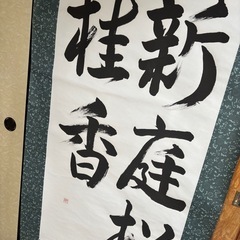 新庭
桂香